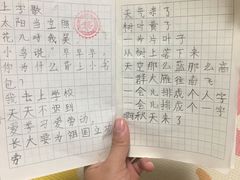 上学歌
太阳当空照
花儿对我笑
小鸟说早早早
你为什么背上小书
包?
我去上学校
天天不迟到
爱学习爱劳动,
长大要为祖国立功
劳
天气凉了
树叶黄了
一片片叶子
从树上落下来
天空那么蓝那么高
一群大雁往南飞
一会儿排成个人字
一会儿排成个一字
啊秋天来了